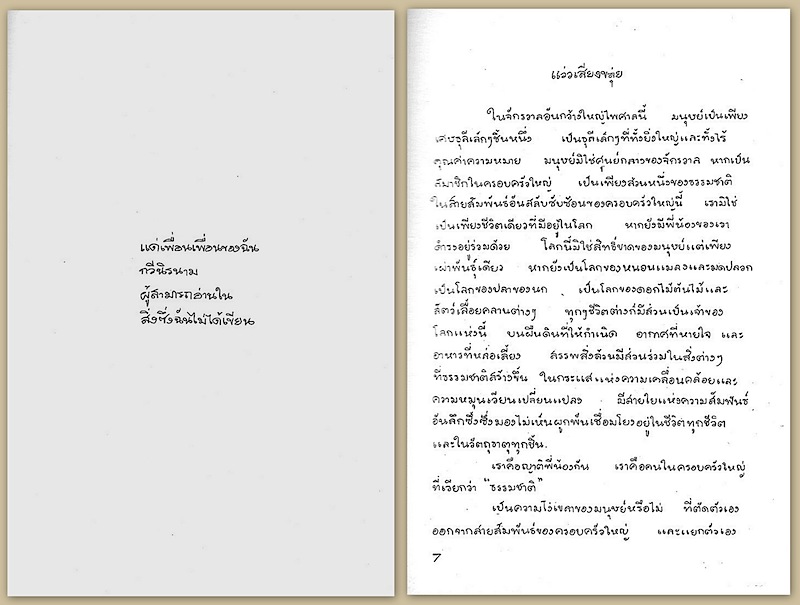 แด่เพื่อนเพื่อนของฉัน
กวีนิรนาม
ผู้สามารถอ่านใน
สิ่งซึ่งฉันไม่ได้เขียน
แว่วเสียงขลุ่ย
ในจักรวาลอันกว้างใหญ่ไพศาลนี้ มนุษย์เป็นเพียง
เศษธุลีเล็กๆชิ้นหนึ่ง เป็นธุลีเล็กๆที่ทั้งยิ่งใหญ่และทั้งไร้
คุณค่าความหมาย มนุษย์มิใช่ศูนย์กลางของจักรวาล หากเป็น
สมาชิกในครอบครัวใหญ่ เป็นเพียงส่วนหนึ่งของธรรมชาติ
ในสายสัมพันธ์อันสลับซับซ้อนของครอบครัวใหญ่นี้ เรามิใช่
เป็นเพียงชีวิตเดียวที่มีอยู่ในโลก หากยังมีพี่น้องของเรา
ดำรงอยู่ร่วมด้วย โลกนี้มิใช่สิทธิ์ขาดของมนุษย์แต่เพียง
เผ่าพันธุ์เดียว หากยังเป็นโลกของหนอนแมลงและมดปลวก
เป็นโลกของปลาของนก เป็นโลกของดอกไม้ต้นไม้และ
สัตว์เลื้อยคลานต่างๆ ทุกๆชีวิตต่างก็มีส่วนเป็นเจ้าของ
โลกแห่งนี้ บนผืนดินที่ให้กำเนิด อากาศที่หายใจ และ
อาหารที่หล่อเลี้ยง สรรพสิ่งล้วนมีส่วนร่วมในสิ่งต่างๆ
ที่ธรรมชาติสร้างขึ้น ในกระแสแห่งความเคลื่อนคล้อยและ
ความหมุนเวียนเปลี่ยนแปลง มีสายใยแห่งความสัมพันธ์
อันลึกซึ้งซึ่งมองไม่เห็นผูกพันเชื่อมโยงอยู่ในชีวิตทุกชีวิต
และในวัตถุธาตุทุกชิ้น.
เราคือญาติพี่น้องกัน เราคือคนในครอบครัวใหญ่
ที่เรียกว่า "ธรรมชาติ"
เป็นความโง่เขลาของมนุษย์หรือไม่ ที่ตัดตัวเอง
ออกจากสายสัมพันธ์ของครอบครัวใหญ่ และแยกตัวเอง
7